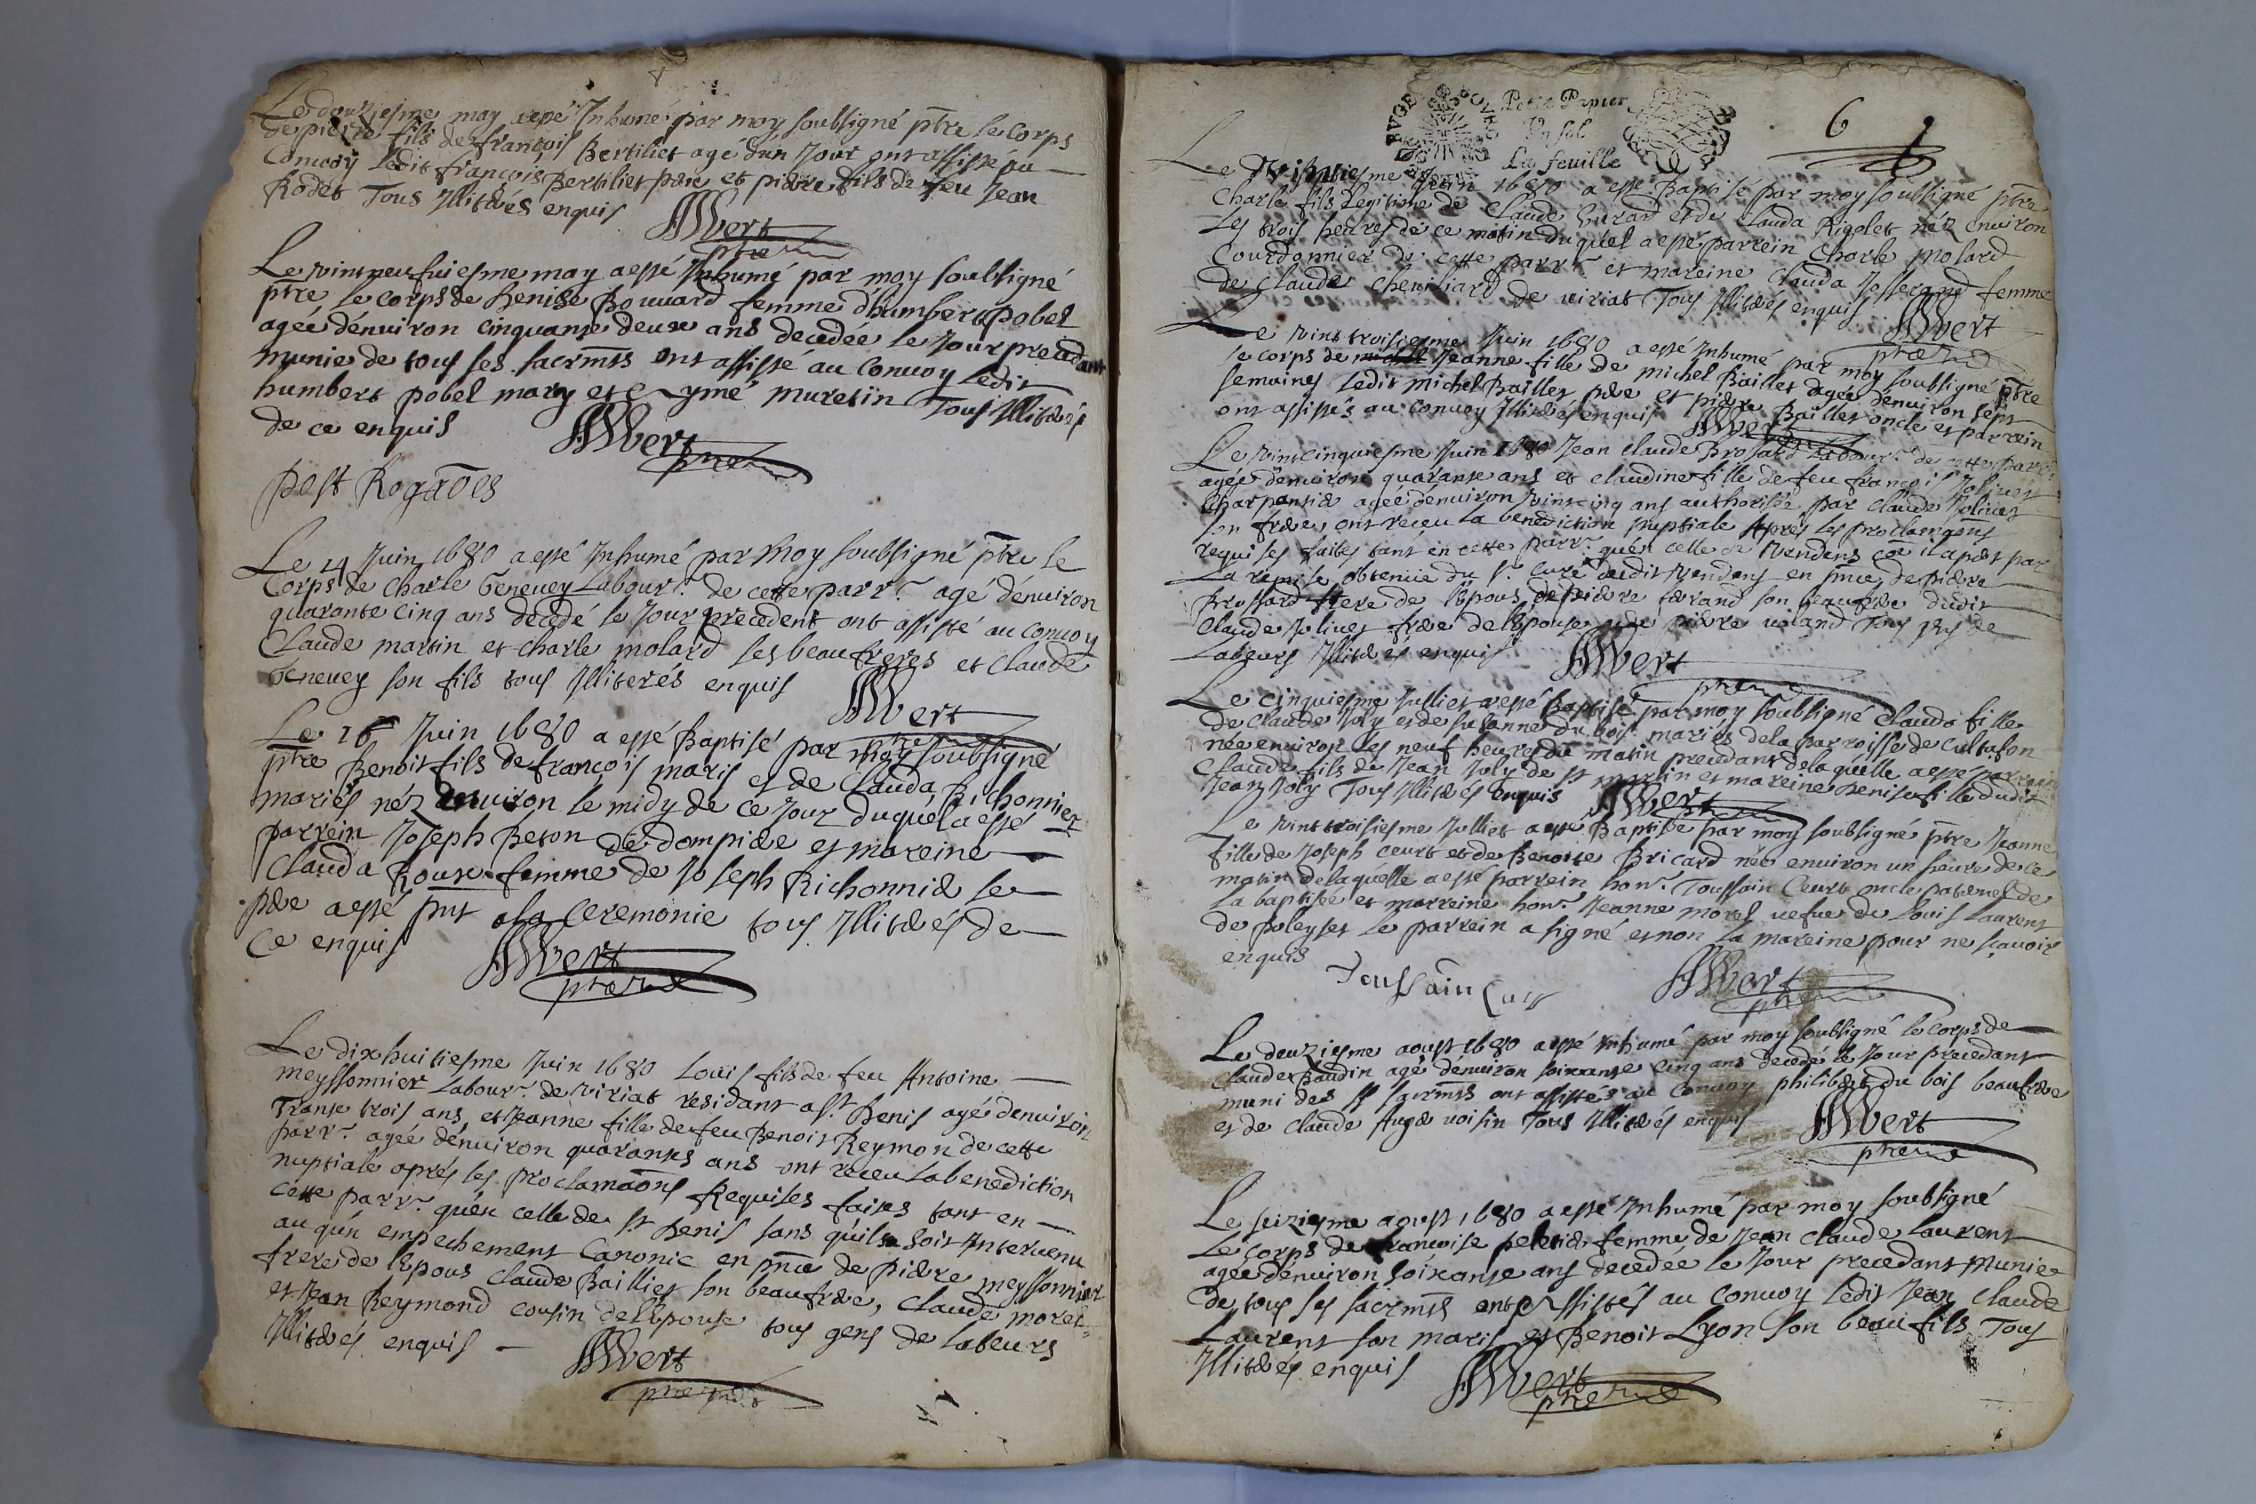 Le douziesme may a esté Inhumé par moy soubsigné ptre le corps
de pierre fils de françois Bertiliet agé dun Jour ont assisté au
Convoy Ledit françois Bertiliet pere et pierre fils de feu Jean
Rodet Tous Illiterés enquis
AWert
ptre
Le vint neufuiesme may a esté Inhumé par moy soubsigné
ptre le corps de Denise Bouuard femme dhumbert pobel
agée dénuiron cinquante deux ans decedée le Jour precedant
munie de tous ses sacrmts ont assisté au Conuoy Ledit
humbert pobel mary et Eymé muretin Tous Illiterés
de ce enquis
AWert
ptre
post Rogaões
Le 14 Juin 1680 a esté Inhumé par Moy soubsigné ptre le
Corps de Charle Geneuey Labour.r de cette parr.e agé dénuiron
quarante cinq ans decedé le Jour precedent ont assisté au Conuoy
Claude martin et Charle molard ses beaufreres et Claude
Geneuey son fils tous Illiterés enquis
AWert
Le 16 Juin 1680 a esté Baptisé par Moy soubsigné
ptre Benoit fils de françois maris et de Clauda Richonnier
mariés néz denuiron le midy de ce Jour duquel a esté
parrein Joseph Beton de dompiere et mareine
Clauda Roux femme de Joseph Richonnier le
pere a esté pnt a la Ceremonie tous Illiterés de
Ce enquis
AWert
ptre
Le dixhuitiesme Juin 1680 Louis fils de feu Antoine
meyssonnier Labour.r de viriat residant a S.t Denis agé denuiron
Trante trois ans et Jeanne fille de feu Benoit Reymon de cette
parr.e agée dénuiron quarantes ans ont receu la benediction
nuptiale aprés les proclamaõns Requises faites tant en
cette parr.e quén celle de St Denis sans quil se soit Interuenu
auqún empechement Canonic en pnce de pierre meyssonnier
frere de lépous Claude Baillies son beaufrere, Claude morel
et Jean Reymond cousin de lépouse tous gens de labeurs
Illiterés enquis
AWert
ptre
Petit Papier
Un sol
La feuille
6
Le Juin 1680 a esté Baptisé par moy soubsigné ptre
Charle fils Legitime de Claude Gurard et de Clauda Rigolet néz enuiron
Les trois heures de ce matin duquel a esté parrein Charle molard
Courdonnier de cette parr.e et mareine Clauda Josserand femme
de Claude Cheuiliard de viriat Tous Illiterés enquis
AWert
ptre
Le vint troisiesme Juin 1680 a esté Inhumé par moy soubsigné ptre
le corps de Jeanne fille de michel Baillet agée dénuiron sept
semaines Ledit michel Baillet pere et pierre Baillet oncle et parrein
ont assistés au Conuoy Illiterés enquis
AWert
Le vint cinquiesme Juin 1680 Jean Claude Brosard Labour.r de cette parr.e
agée dénuiron quarante ans et claudine fille de feu françois Joliuet
Charpantier agée dénuiron vint cinq ans authorisée par Claude Joliuet
son frere ont receu la benediction nuptiale Aprés les proclamaõns
requises faites tant en cette parr.e quén celle de Vendens coe il apert par
La remise obtenüe du S.r Curé dudit Vendens en pnce de pierre
Brossard frere de lépous de pierre ferand son beaufrere dudit
Claude Joliuet frere de lépouse et de pierre uiland Tous gens de
Labeurs Illiterés enquis
AWert
ptre
Le cinquiesme Julliet a esté Baptisé par moy soubsigné Clauda fille
de Claude Joly et de Susanne du bois mariés de la parroisse de Cultafon
née enuiron les neuf heures du matin precedant de laquélle a esté parrein
Claude fils de Jean Joly de St martin et mareine Denise fille dudit
Jean Joly Tous Illiterés enquis
AWert
Le vint troisiesme Julliet a esté Baptisée par moy soubsigné ptre Jeanne
fille de Joseph Ceurt et de Benoite Bricard née enuiron un heure de ce
matin de laquelle a esté parrein hon.e Toussain Ceurt oncle paternel de
La baptisée et marreine hon.e Jeanne morel uefue de Louis Laurent
de poleyset le parrein a signé et non la mareine pour ne sçauoir
enquis
Toussain
AWert
ptre
Le deuziesme aoust 1680 a esté Inhumé par moy soubsigné le corps de
Claude Baudin agé dénuiron soixante cinq ans decedé le Jour precedant
muni des SS sacrmts ont assistés au Conuoy philibert du bois beaufrere
et de Claude Auger uoisin Tous Illiterés enquis
AWert
ptre
Le seiziesme aoust 1680 a esté Inhumé par moy soubsigné
Le corps de françoise peletier femme de Jean Claude Laurent
agée dénuiron soixante ans decedée le Jour precedant Munie
De tous ses sacrmts ont Assistés au Conuoy Ledit Jean Claude
Laurent son maris et Benoit Lyon son beau fils Tous
Illiterés enquis
AWert
ptre